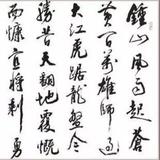 鍾山風雨起蒼
黃百萬雄師過
大江虎踞龍盤今
勝昔天翻地覆慨
而慷宜將剩勇